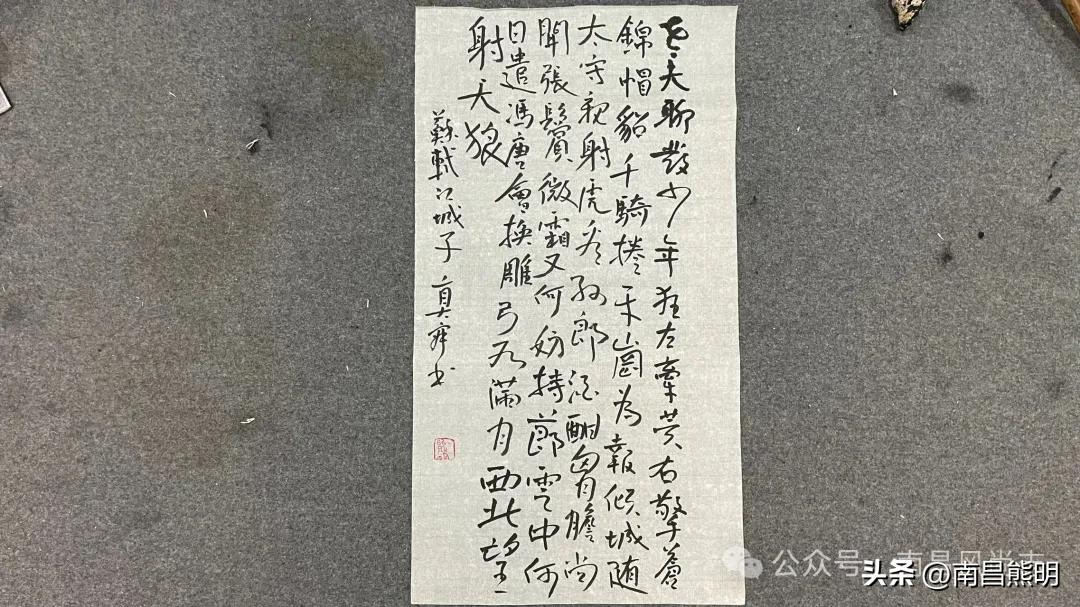 老夫聊發少年狂左牽黄右擎蒼
錦帽貂千騎捲平崗為報傾城随
太守親射虎看孫郎酒酣胸膽尚
開張鬢微霜又何妨持節雲中何
日遣馮唐會換雕弓如滿月西北望
射天狼
蘇軾江城子 書
公众号
头条 @南昌熊明